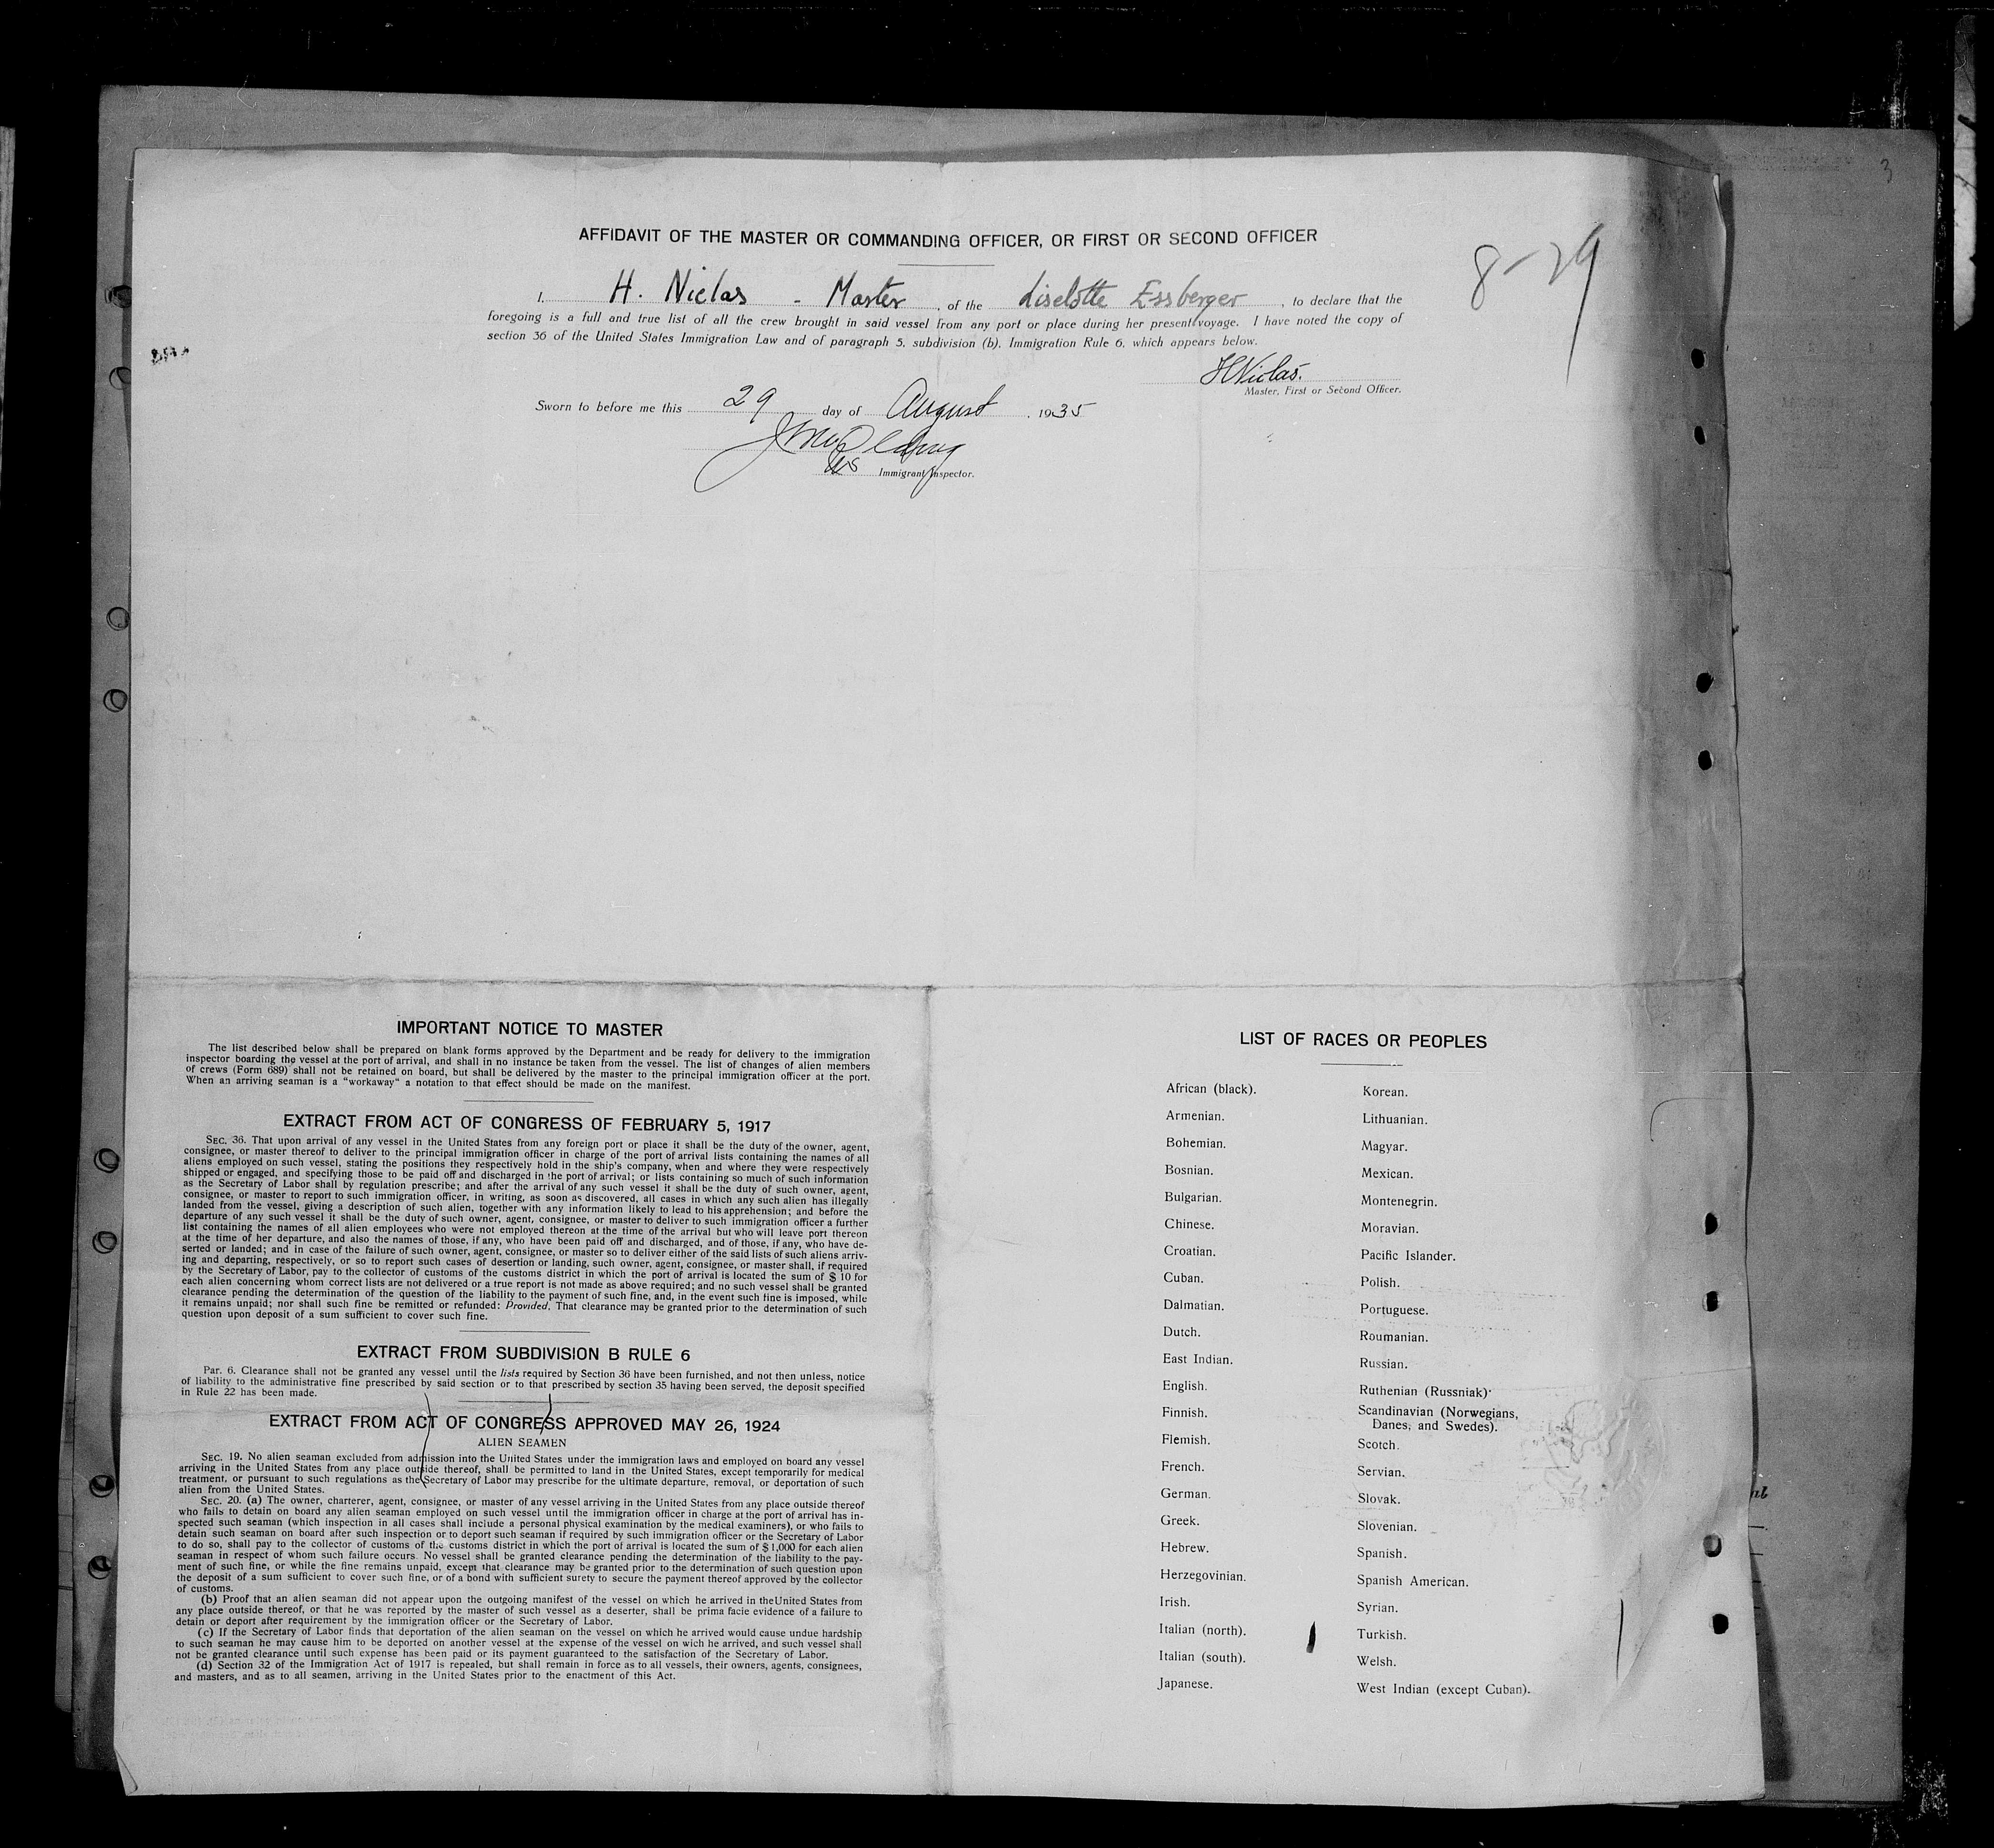 3
AFFIDAVIT OF THE MASTER OR COMMANDING OFFICER, OR FIRST OR SECOND OFFICER
8-29
I, H. Niclas - Master, of the Liselotte Essberger, to declare that the
foregoing is a full and true list of all the crew brought in said vessel from any port or place during her present voyage. I have noted the copy of
section 36 of the United States Immigration Law and of paragraph 5, subdivision (b), Immigration Rule 6, which appears below.
HNiclas.
Master, First or Second Officer.
Sworn to before me this 29 day of August, 1935
Immigrant Inspector.
IMPORTANT NOTICE TO MASTER
The list described below shall be prepared on blank forms approved by the Department and be ready for delivery to the immigration
inspector boarding the vessel at the port of arrival, and shall in no instance be taken from the vessel. The list of changes of alien members
of crews (Form 689) shall not be retained on board, but shall be delivered by the master to the principal immigration officer at the port.
When an arriving seaman is a "workaway" a notation to that effect should be made on the manifest.
EXTRACT FROM ACT OF CONGRESS OF FEBRUARY 5, 1917
SEC. 36. That upon arrival of any vessel in the United States from any foreign port or place it shall be the duty of the owner, agent,
consignee, or master thereof to deliver to the principal immigration officer in charge of the port of arrival lists containing the names of all
aliens employed on such vessel, stating the positions they respectively hold in the ship's company, when and where they were respectively
shipped or engaged, and specifying those to be paid off and discharged in the port of arrival; or lists containing so much of such information
as the Secretary of Labor shall by regulation prescribe; and after the arrival of any such vessel it shall be the duty of such owner, agent,
consignee, or master to report to such immigration officer, in writing, as soon as discovered, all cases in which any such alien has illegally
landed from the vessel, giving a description of such alien, together with any information likely to lead to his apprehension; and before the
departure of any such vessel it shall be the duty of such owner, agent, consignee, or master to deliver to such immigration officer a further
list containing the names of all alien employees who were not employed thereon at the time of the arrival but who will leave port thereon
at the time of her departure, and also the names of those, if any, who have been paid off and discharged, and of those, if any, who have de-
serted or landed; and in case of the failure of such owner, agent, consignee, or master so to deliver either of the said lists of such aliens arriv-
ing and departing, respectively, or so to report such cases of desertion or landing, such owner, agent, consignee, or master shall, if required
by the Secretary of Labor, pay to the collector of customs of the customs district in which the port of arrival is located the sum of $ 10 for
each alien concerning whom correct lists are not delivered or a true report is not made as above required; and no such vessel shall be granted
clearance pending the determination of the question of the liability to the payment of such fine, and, in the event such fine is imposed, while
it remains unpaid; nor shall such fine be remitted or refunded: Provided, That clearance may be granted prior to the determination of such
question upon deposit of a sum sufficient to cover such fine.
EXTRACT FROM SUBDIVISION B RULE 6
Par. 6. Clearance shall not be granted any vessel until the lists required by Section 36 have been furnished, and not then unless, notice
of liability to the administrative fine prescribed by said section or to that prescribed by section 35 having been served, the deposit specified
in Rule 22 has been made.
EXTRACT FROM ACT OF CONGRESS APPROVED MAY 26, 1924
ALIEN SEAMEN
SEC. 19. No alien seaman excluded from admission into the United States under the immigration laws and employed on board any vessel
arriving in the United States from any place outside thereof, shall be permitted to land in the United States, except temporarily for medical
treatment, or pursuant to such regulations as the Secretary of Labor may prescribe for the ultimate departure, removal, or deportation of such
alien from the United States.
SEC. 20. (a) The owner, charterer, agent, consignee, or master of any vessel arriving in the United States from any place outside thereof
who fails to detain on board any alien seaman employed on such vessel until the immigration officer in charge at the port of arrival has in-
spected such seaman (which inspection in all cases shall include a personal physical examination by the medical examiners), or who fails to
detain such seaman on board after such inspection or to deport such seaman if required by such immigration officer or the Secretary of Labor
to do so, shall pay to the collector of customs of the customs district in which the port of arrival is located the sum of $ 1,000 for each alien
seaman in respect of whom such failure occurs. No vessel shall be granted clearance pending the determination of the liability to the pay-
ment of such fine, or while the fine remains unpaid, except that clearance may be granted prior to the determination of such question upon
the deposit of a sum sufficient to cover such fine, or of a bond with sufficient surety to secure the payment thereof approved by the collector
of customs.
(b) Proof that an alien seaman did not appear upon the outgoing manifest of the vessel on which he arrived in theUnited States from
any place outside thereof, or that he was reported by the master of such vessel as a deserter, shall be prima facie evidence of a failure to
detain or deport after requirement by the immigration officer or the Secretary of Labor.
(c) If the Secretary of Labor finds that deportation of the alien seaman on the vessel on which he arrived would cause undue hardship
to such seaman he may cause him to be deported on another vessel at the expense of the vessel on wich he arrived, and such vessel shall
not be granted clearance until such expense has been paid or its payment guaranteed to the satisfaction of the Secretary of Labor.
(d) Section 32 of the Immigration Act of 1917 is repealed, but shall remain in force as to all vessels, their owners, agents, consignees,
and masters, and as to all seamen, arriving in the United States prior to the enactment of this Act.
LIST OF RACES OR PEOPLES
African (black).
Armenian.
Bohemian.
Bosnian.
Bulgarian.
Chinese.
Croatian.
Cuban.
Dalmatian.
Dutch.
East Indian.
English.
Finnish.
Flemish.
French.
German.
Greek.
Hebrew.
Herzegovinian.
Irish.
Italian (north).
Italian (south).
Japanese.
Korean.
Lithuanian.
Magyar.
Mexican.
Montenegrin.
Moravian.
Pacific Islander.
Polish.
Portuguese.
Roumanian.
Russian.
Ruthenian (Russniak).
Scandinavian (Norwegians,
Danes, and Swedes).
Scotch.
Servian.
Slovak.
Slovenian.
Spanish.
Spanish American.
Syrian.
Turkish.
Welsh.
West Indian (except Cuban).